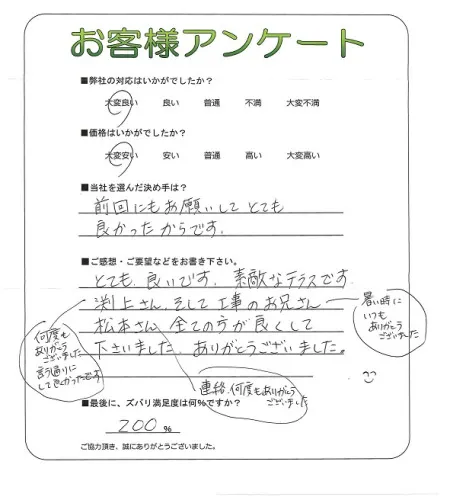 お客様アンケート
■弊社の対応はいかがでしたか?
大変良い 良い 普通 不満 大変不満
■価格はいかがでしたか?
大変安い 安い 普通 高い 大変高い
■当社を選んだ決め手は?
前回にもお願いしてとても
良かったからです.
■ご感想・ご要望などをお書き下さい。
とても良いです. 素敵なテラスです.
渕上さん、そして工事のお兄さん
松本さん、全ての方が良くして
下さいました. ありがとうございました。
暑い時に
いつも
ありがとう
ございました
何度も
ありがとう
ございました
言う通りに
して良かったです
連絡、何度もありがとう
ございました
■最後に、ズバリ満足度は何%ですか?
200 %
ご協力頂き、誠にありがとうございました。